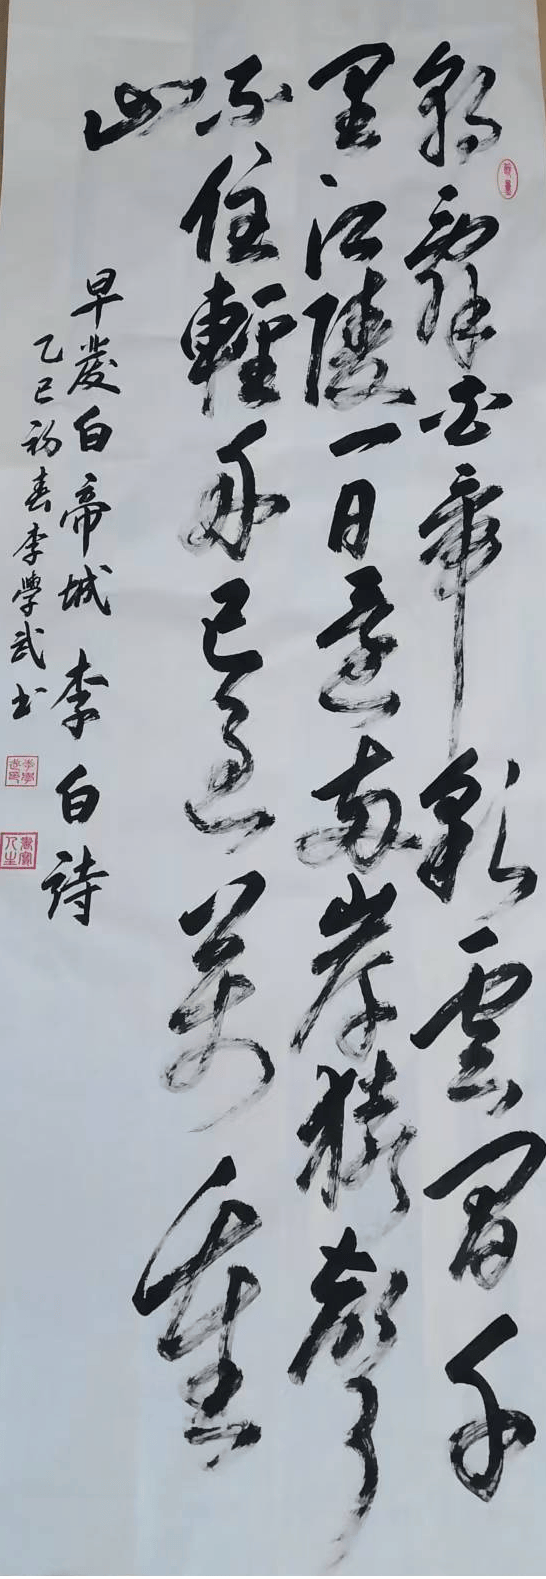 朝辭白帝彩雲間千
里江陵一日還兩岸猿聲
不住輕舟已過萬重
山
早發白帝城 李白詩
乙巳初春李學武書